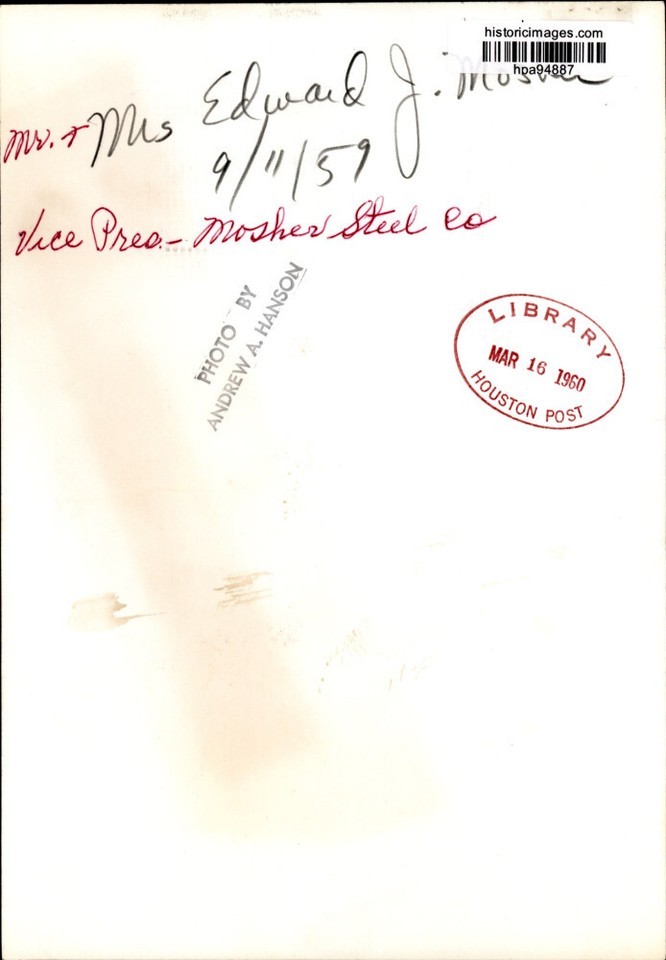 historicimages.com
hpa94887
Mr. + Mrs Edward J. Mosher
9/11/59
Vice Pres. - Mosher Steel Co
PHOTO BY
ANDREW A. HANSON
LIBRARY
MAR 16 1960
HOUSTON POST